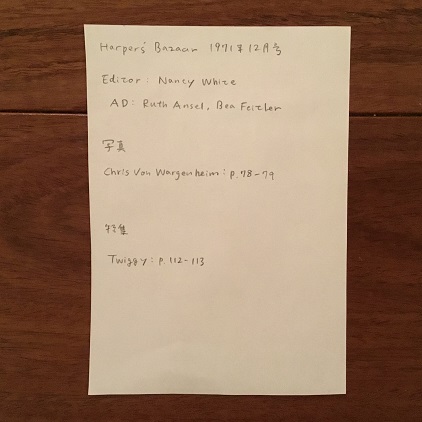 Harpers' Bazaar 1971年12月号
Editor: Nancy White
AD: Ruth Ansel, Bea Feitler
写真
Chris Von Wargenheim: p.78-79
特集
Twiggy: p.112-113